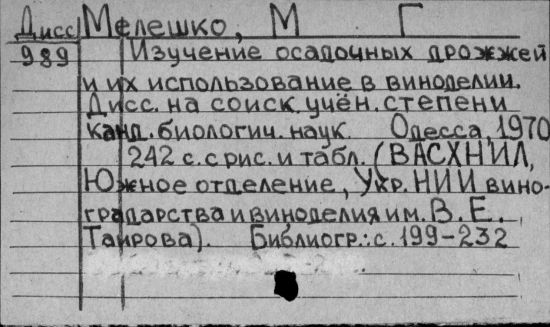 Дисс Мелешко, М Г
989 Изучение осадочных дрожжей
и их использование в виноделии.
Дисс. на соиск. учён. степени
канд. биологич. наук Одесса, 1970
242 с. с рис. и табл. (ВАСХНИЛ,
Южное отделение, Укр. НИИ вино-
градарства и виноделия им. В. Е.
Таирова). Библиогр.: с. 199-232